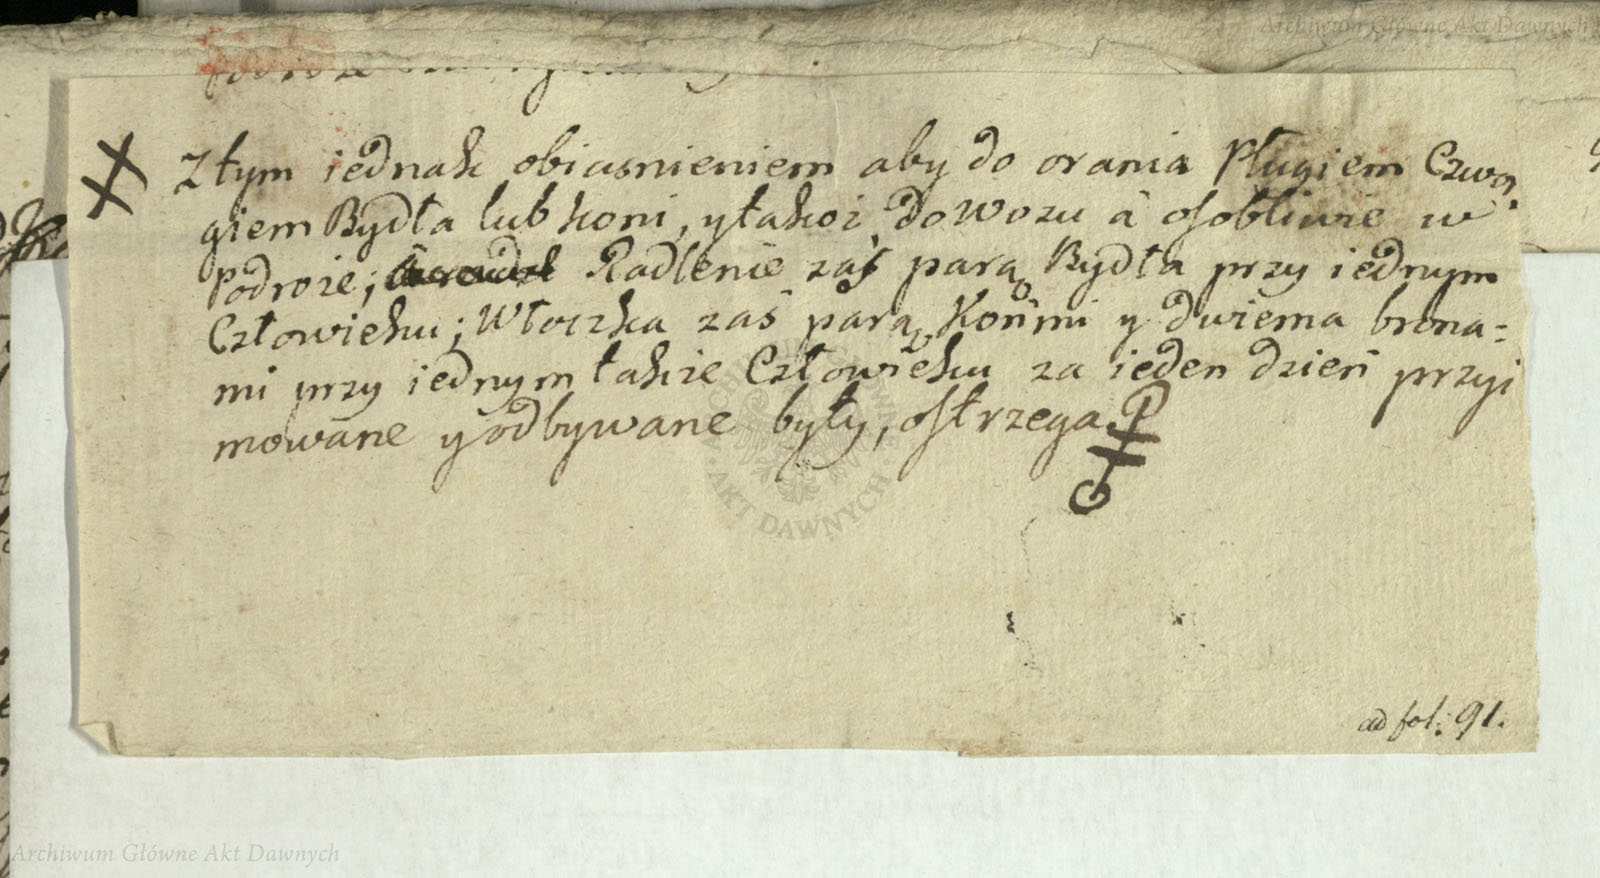 Archiwum Główne Akt Dawnych
Z tym iednak obiasnieniem aby do orania Pługiem Czwor,
giem Bydła lub koni, y takoż do wozu á osobliwie w
Podroże; Radlenie zaś parą Bydła przy iednym
Człowieku; Włoczka zaś parą Końmi y dwiema brona=
mi przy iednym takze Człowieku za ieden dzień przyi
mowane y odbywane były, ostrzega.
AKT DAWNYCH
ad fol: 91.
Archiwum Główne Akt Dawnych